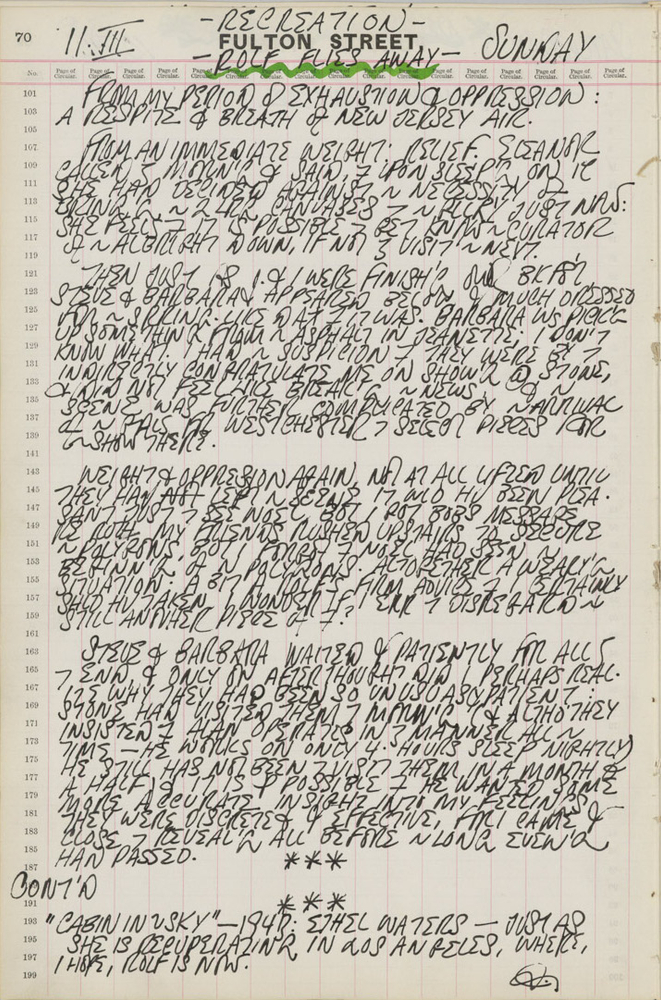 70
- RECREATION -
11. III
FULTON STREET
SUNDAY
- ROLF FLIES AWAY -
No. Page of Circular. Page of Circular. Page of Circular. Page of Circular. Page of Circular. Page of Circular. Page of Circular. Page of Circular. Page of Circular. Page of Circular. Page of Circular. Page of Circular. Page of Circular. Page of Circular. Page of Circular. Page of Circular. Page of Circular.
101 FROM MY PERIOD OF EXHAUSTION & OPPRESSION :
103 A RESPITE & BREATH of NEW JERSEY AIR.
105
107 FROM AN IMMEDIATE WEIGHT: RELIEF. ELEANOR
109 CALLED MORN'G & SAID, UPON SLEEP'G ON IT
111 SHE HAD DECIDED AGAINST ~ NECESSITY of
113 ~ 2 CANVASES JUST NOW:
115 SHE FEELS IT IS POSSIBLE GET CURATOR
117 of ~ ALBRIGHT DOWN, IF NOT VISIT ~ NEXT.
119
121 THEN JUST AS & I WERE FINISH'G BKFST
123 STEVE & BARBARA APPEARED BELOW & MUCH DRESSED
125 FOR ~ SPRING-LIKE DAY IT WAS. BARBARA WS PICK'G
127 UP SOMETHING FROM ~ ASPHALT IN , I DON'T
129 KNOW WHAT. I HAD ~ SUSPICION THEY WERE BY
131 INDIRECTLY CONGRATULATE ME ON SHOW'G @ STONE,
133 & DID NOT FEEL LIKE BREAK'G ~ NEWS
135 SCENE WAS FURTHER COMPLICATED BY ~ ARRIVAL
137 of ~ WESTCHESTER SELECT PIECES FOR
139 ~ SHOW THERE.
141
143 WEIGHT & OPPRESSION AGAIN, NOT AT ALL LIFTED UNTIL
145 THEY HAD LEFT ~ SCENE. IT WLD HV BEEN PLEA-
147 SANT JUST SEE NOEL BUT I GOT BOBS MESSAGE
149 MY FRIENDS RUSHED UPSTAIRS TO SECURE
151 ~ POLYGONS, BUT I FORGOT NOEL HAD SEEN ~
153 BEGINN'G of ~ POLYGONS. ALTOGETHER A WEARY'G
155 SITUATION. A BIT FIRM ADVICE I CERTAINLY
157 SHLD HV TAKEN. I WONDER IF I ERR DISREGARD'G ~
159 STILL ANOTHER PIECE of ?
161
163 STEVE & BARBARA WAITED PATIENTLY FOR ALL
165 END, & ONLY ON AFTERTHOUGHT DID I PERHAPS REAL-
167 IZE WHY THEY HAD BEEN SO UNUSUALLY PATIENT :
169 STONE HAD VISITED THEM MORN'G (& ALTHO THEY
171 INSISTED ALAN OPERATES IN MANNER ALL ~
173 TIME — HE WORKS ON ONLY 4 HOURS SLEEP NIGHTLY)
175 HE STILL HAS NOT BEEN VISIT THEM IN A MONTH &
177 A HALF) & IT IS POSSIBLE HE WANTED SOME
179 MORE ACCURATE INSIGHT INTO MY FEELINGS.
181 THEY WERE DISCRETE & EFFECTIVE, FOR I CAME
183 CLOSE REVEAL'G ALL BEFORE ~ LONG EVEN'G
185 HAD PASSED.
187 ***
CONT'D
191 ***
193 "CABIN IN SKY" — 194 : ETHEL WATERS — JUST AS
195 SHE IS RECUPERATING IN LOS ANGELES, WHERE,
197 I HOPE, ROLF IS NOW.
199